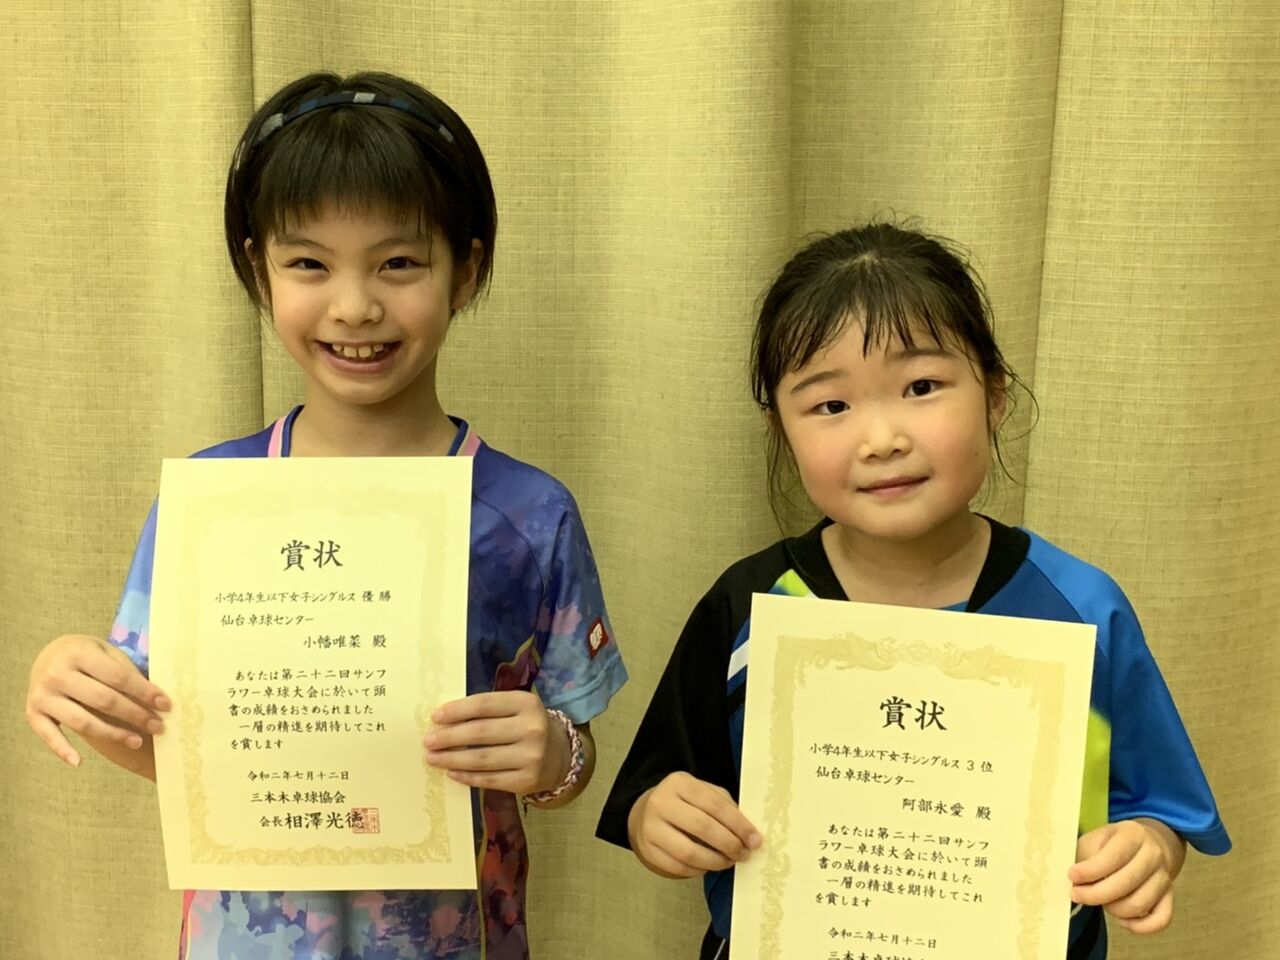 賞状
小学4年生以下女子シングルス 優勝
仙台卓球センター
小幡唯菜 殿
あなたは第二十二回サンフ
ラワー卓球大会に於いて頭
書の成績をおさめられました
一層の精進を期待してこれ
を賞します
令和二年七月十二日
三本木卓球協会
会長 相澤光徳
賞状
小学4年生以下女子シングルス 3位
仙台卓球センター
阿部永愛 殿
あなたは第二十二回サンフ
ラワー卓球大会に於いて頭
書の成績をおさめられました
一層の精進を期待してこれ
を賞します
令和二年七月十二日
三本木卓球協